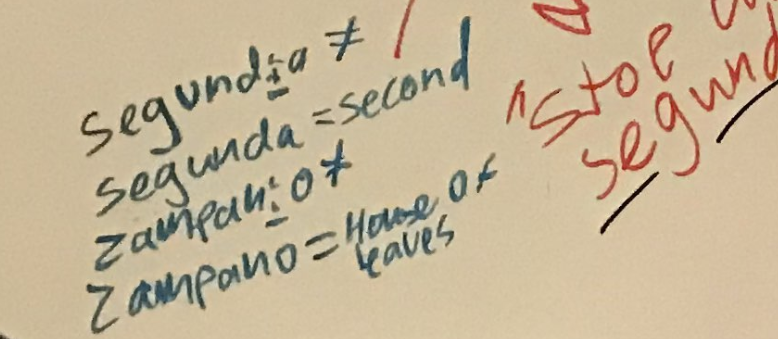 segundia ≠
segunda = second
zampanio ≠
zampano = House Of
Leaves
"stoe
segund